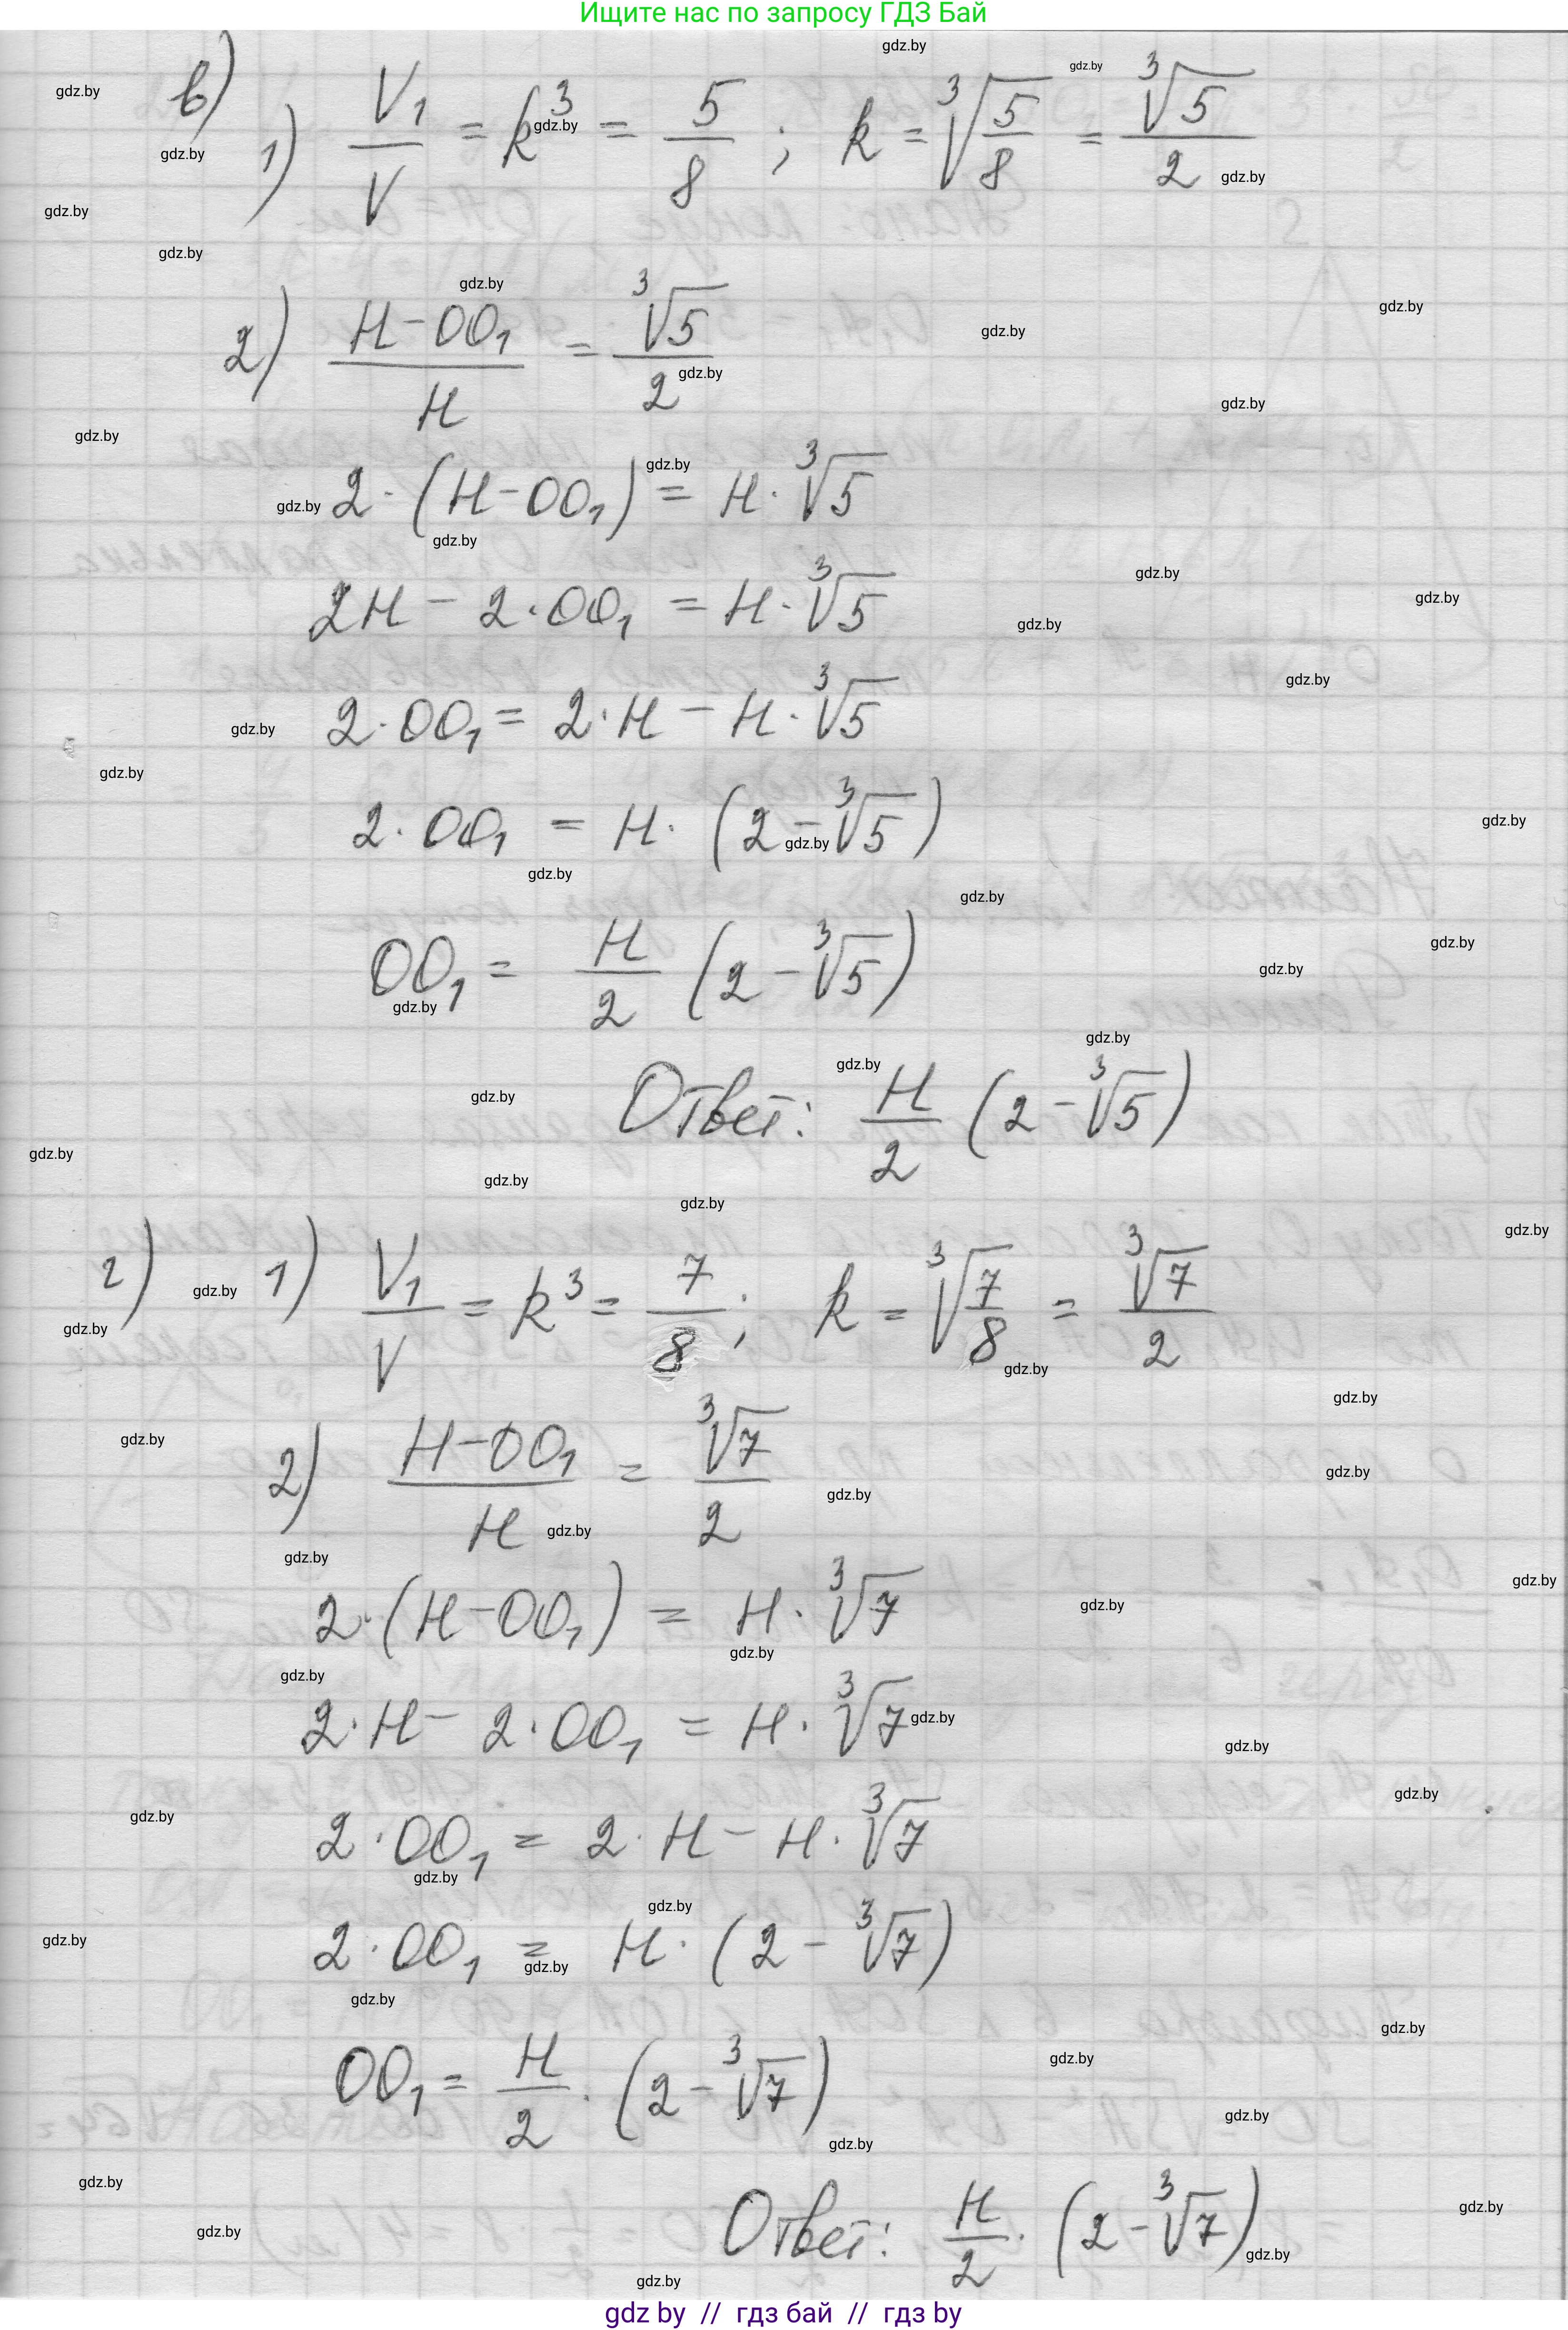 Ищите нас по запросу ГДЗ Бай
в)
1) V₁/V = k³ = 5/8 ; k = ∛(5/8) = ∛5/2
2) (H-OO₁)/H = ∛5/2
2·(H-OO₁) = H·∛5
2H - 2·OO₁ = H·∛5
2·OO₁ = 2·H - H·∛5
2·OO₁ = H·(2-∛5)
OO₁ = H/2 (2-∛5)
Ответ: H/2 (2-∛5)
г) 1) V₁/V = k³ = 7/8 ; k = ∛(7/8) = ∛7/2
2) (H-OO₁)/H = ∛7/2
2·(H-OO₁) = H·∛7
2·H - 2·OO₁ = H·∛7
2·OO₁ = 2·H - H·∛7
2·OO₁ = H·(2-∛7)
OO₁ = H/2·(2-∛7)
Ответ: H/2·(2-∛7)
gdz by // гдз бай // гдз by